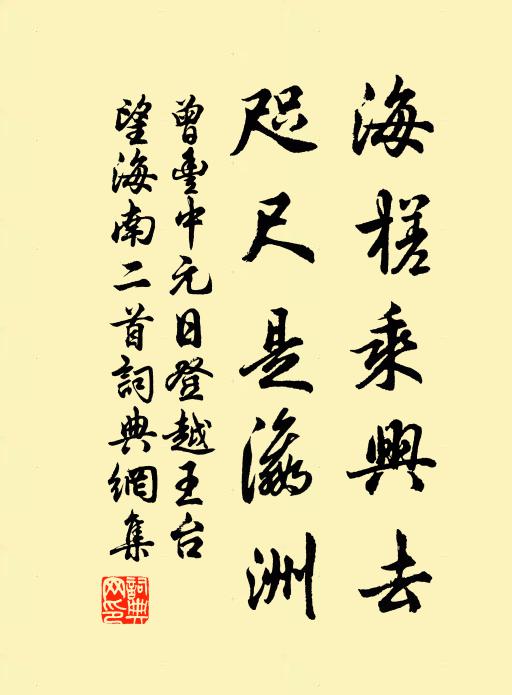 海槎乘興去
咫尺是瀛洲
曾豐中元日登越王台
望海南二首詞典網集
詞典網印